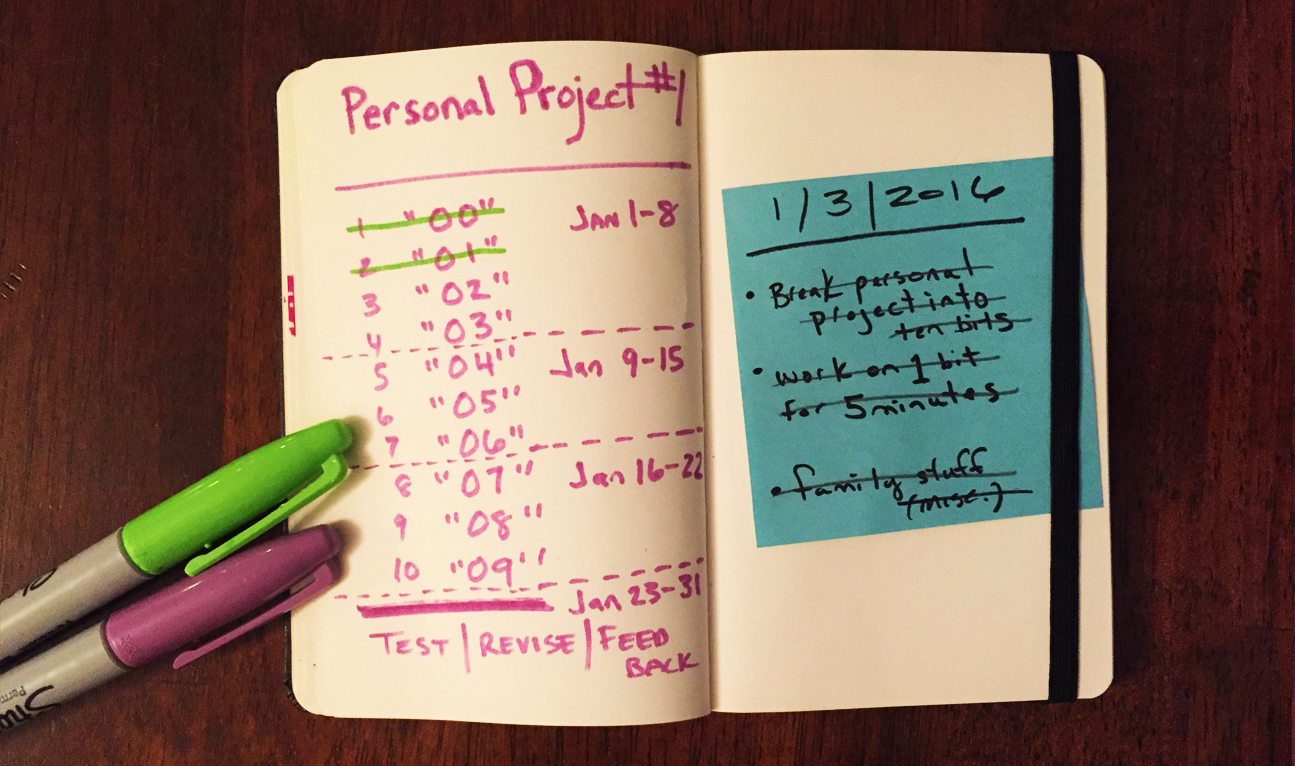 Personal Project #1
1 "00" JAN 1-8
2 "01"
3 "02"
4 "03"
5 "04" Jan 9-15
6 "05"
7 "06"
8 "07" Jan 16-22
9 "08"
10 "09"
Jan 23-31
TEST | REVISE | FEED
BACK
1/3/2016
• Break personal
project into
ten bits
• work on 1 bit
for 5 minutes
• family stuff
(misc.)